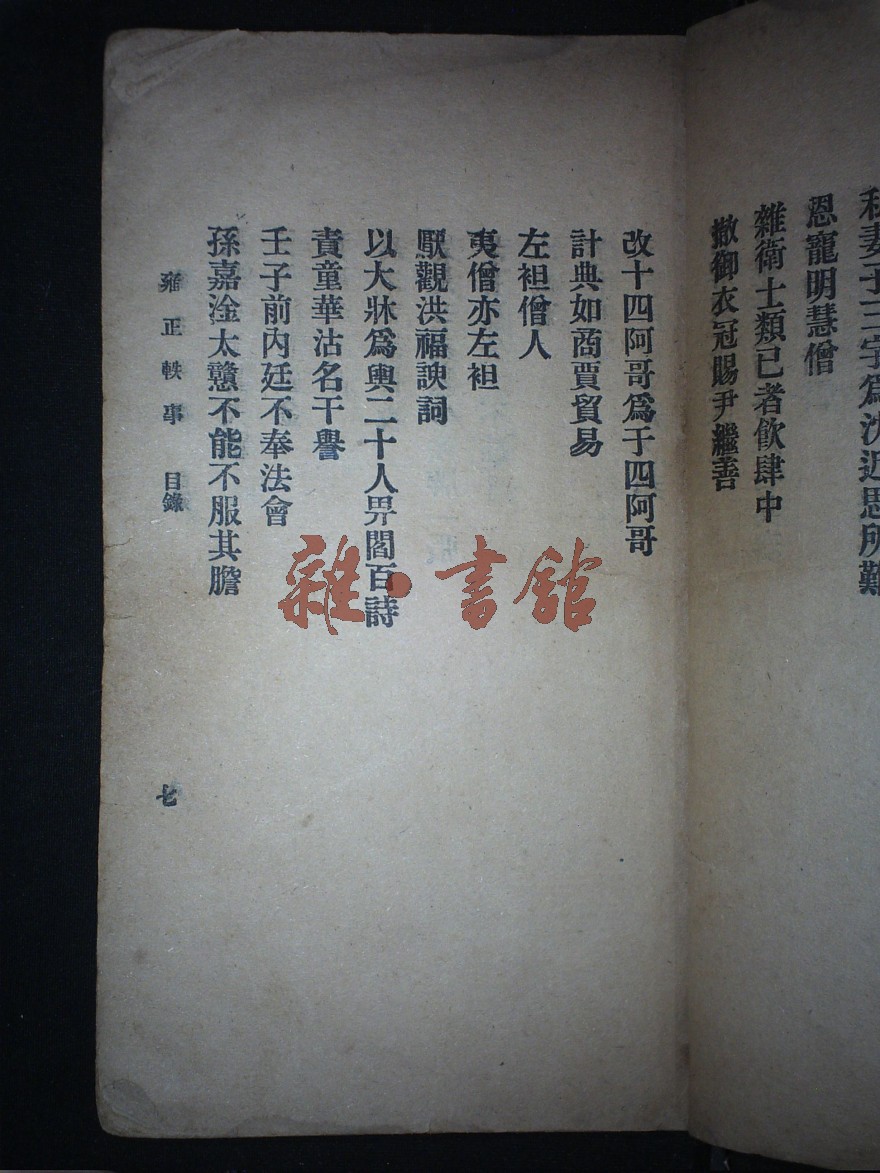 秘妻子三字爲沈近思所難
恩寵明慧僧
雜衛士類已者飲肆中
撤御衣冠賜尹繼善
改十四阿哥爲于四阿哥
計典如商賈貿易
左袒僧人
夷僧亦左袒
厭觀洪福諛詞
以大牀爲輿二十人舁閻百詩
責童華沽名干譽
壬子前內廷不奉法會
孫嘉淦太戇不能不服其膽
雍正軼事 目錄
七
雜·書館